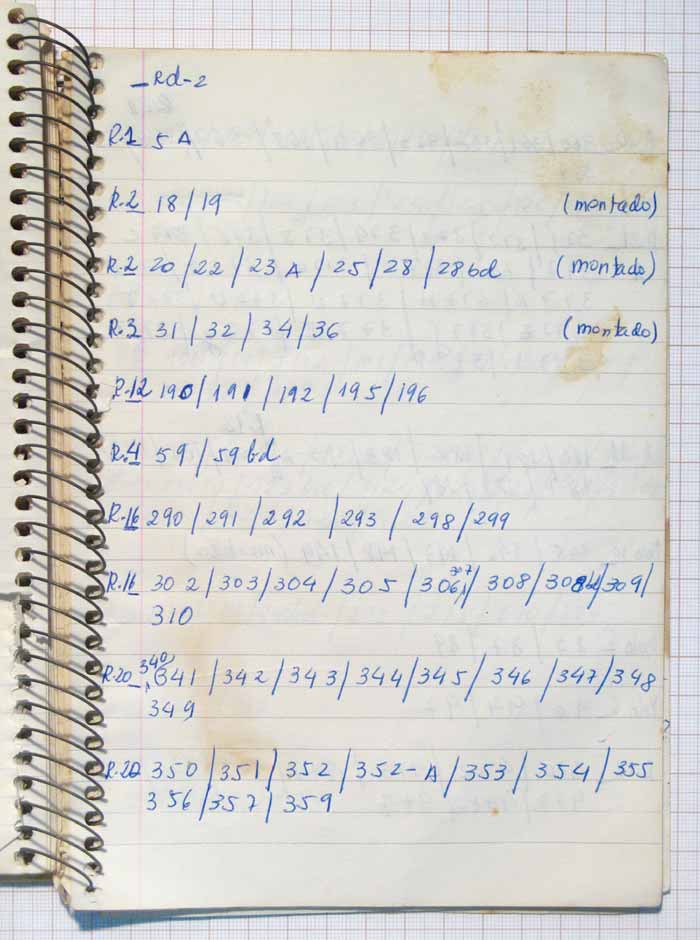 – Rd-2
R.1 5 A
R.2 18 / 19 (montado)
R.2 20 / 22 / 23 A / 25 / 28 / 28 bd (montado)
R.3 31 / 32 / 34 / 36 (montado)
R.12 190 / 191 / 192 / 195 / 196
R.4 59 / 59 bd
R.16 290 / 291 / 292 / 293 / 298 / 299
R.16 302 / 303 / 304 / 305 / 306 / 307 / 308 / 308 bd / 309 /
310
R.20 340 / 341 / 342 / 343 / 344 / 345 / 346 / 347 / 348
349
R.20 350 / 351 / 352 / 352-A / 353 / 354 / 355
356 / 357 / 359